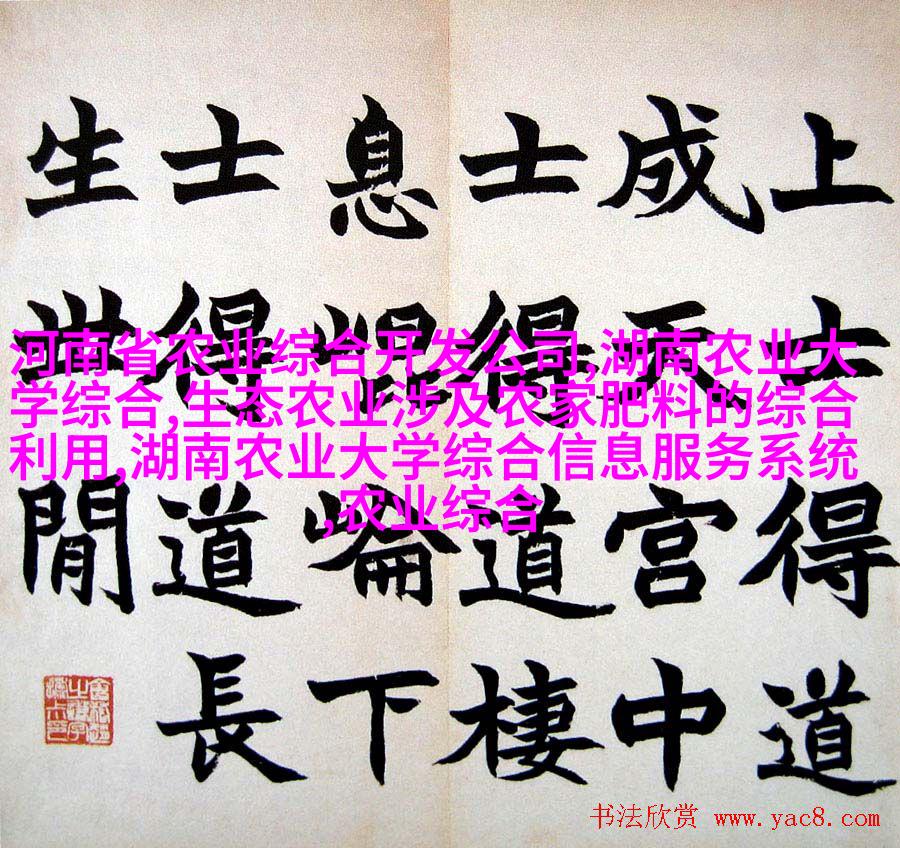 上士得道
成天宮中
士得道棲
息崐崘下
士得道長
生世閒
河南省农业综合开发公司,湖南农业大
学综合,生态农业涉及农家肥料的综合
利用,湖南农业大学综合信息服务系统
,农业综合
书法欣赏 www.yac8.com